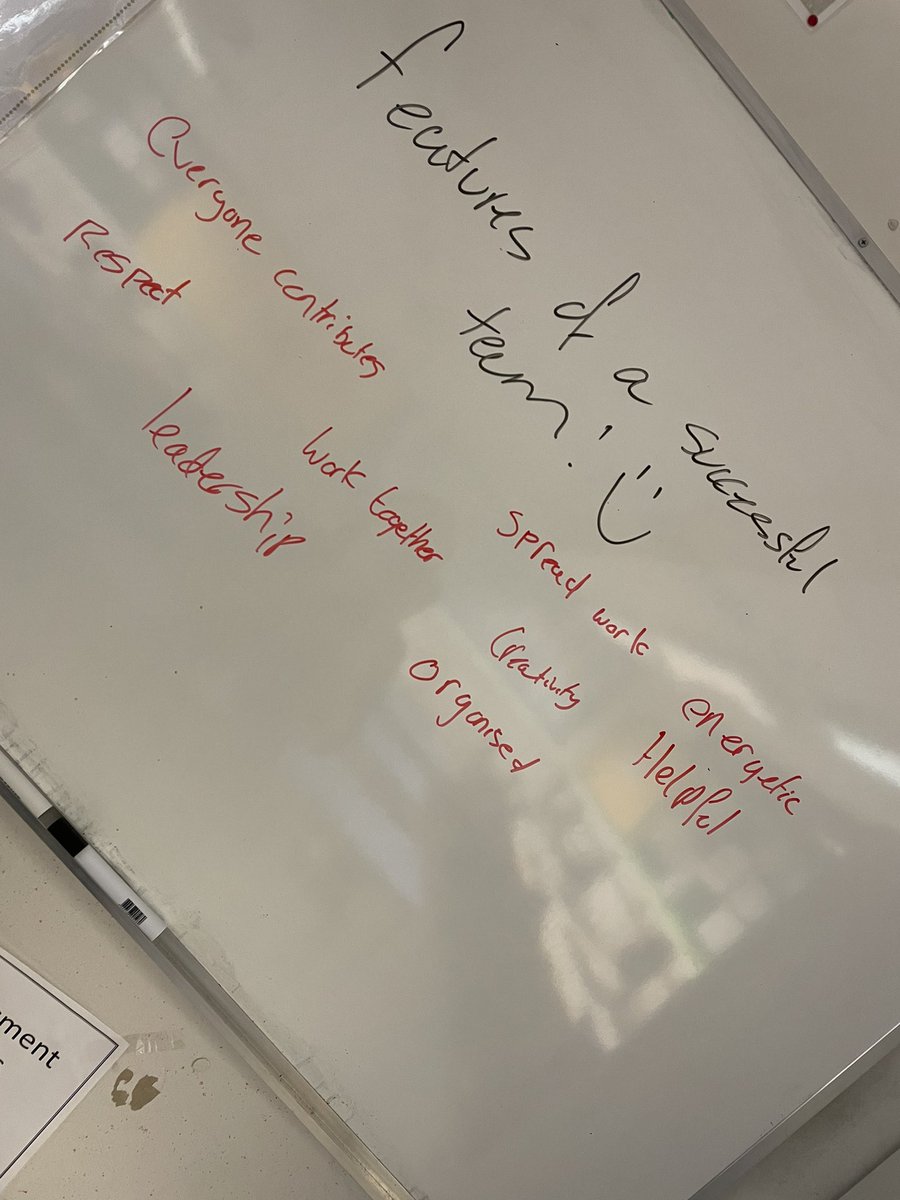 features of a successful
team! :)
Everyone contributes
Respect
work together
leadership
spread work
Creativity
organised
energetic
Helpful
ment